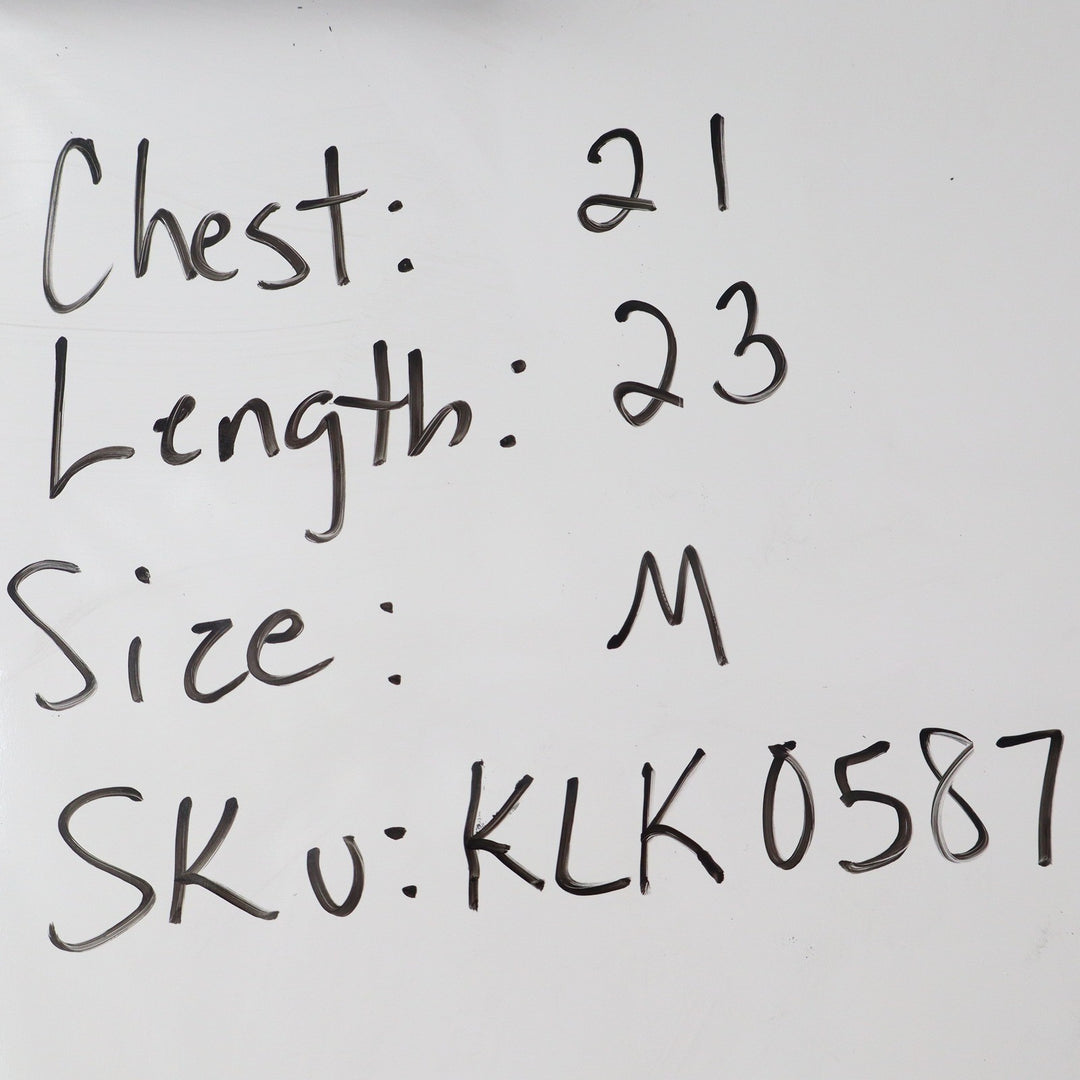 Chest: 21
Length: 23
Size: M
SKU: KLK0587